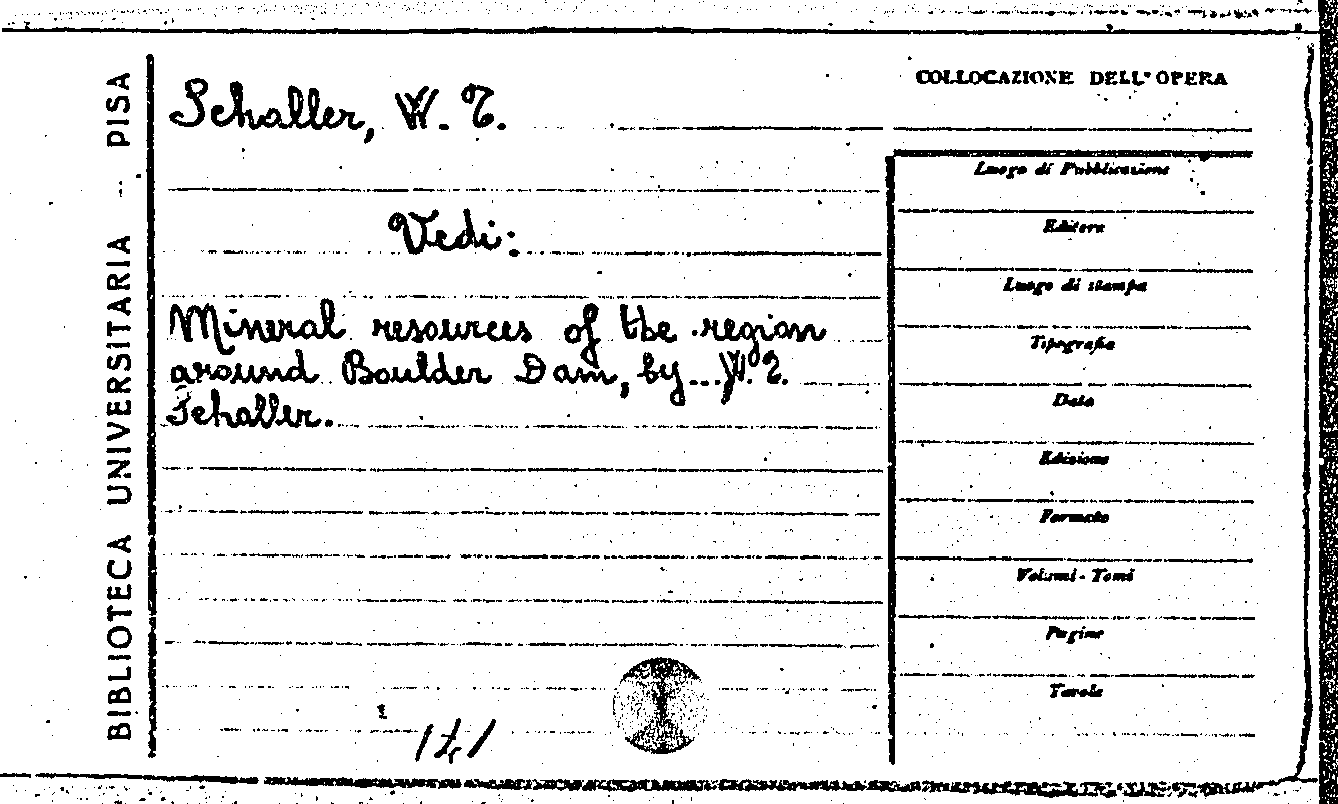 BIBLIOTECA UNIVERSITARIA - PISA
Schaller, W. T.
Vedi:
Mineral resources of the region
around Boulder Dam, by... W. T.
Schaller.
COLLOCAZIONE DELL'OPERA
Luogo di Pubblicazione
Editore
Luogo di stampa
Tipografia
Data
Edizione
Formato
Volumi - Tomi
Pagine
Tavole